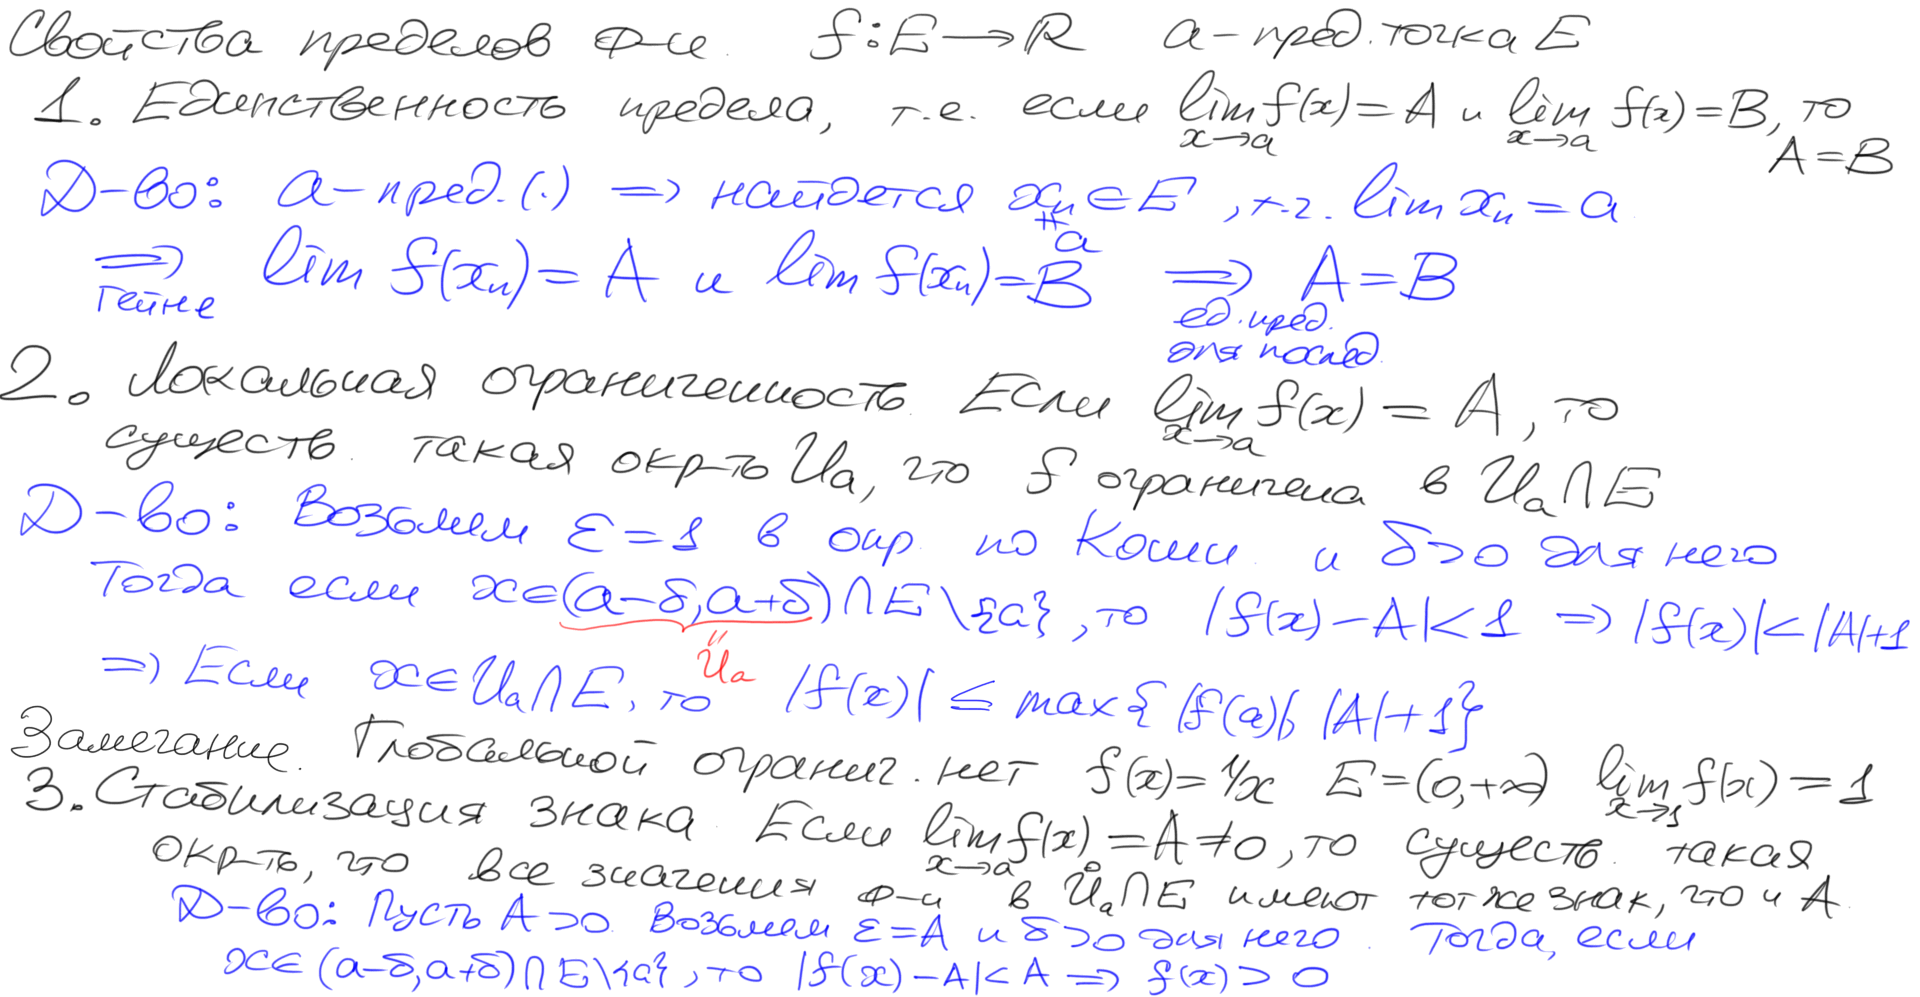 Свойства пределов ф-и. f:E→ℝ a – пред. точка E
1. Единственность предела, т.е. если lim f(x) = A и lim f(x) = B, то
x→a x→a A = B
Д-во: a – пред. (·) ⇒ найдется xₙ ∈ E, т.ч. lim xₙ = a
≠ a
⇒ lim f(xₙ) = A и lim f(xₙ) = B ⇒ A = B
Гейне ед. пред.
для послед.
2. Локальная ограниченность. Если lim f(x) = A, то
x→a
существ. такая окр-ть Uₐ, что f ограничена в Uₐ ∩ E
Д-во: Возьмем ε = 1 в опр. по Коши и δ > 0 для него
Тогда если x ∈ (a–δ, a+δ) ∩ E \ {a}, то |f(x) – A| < 1 ⇒ |f(x)| < |A|+1
" Uₐ
⇒ Если x ∈ Uₐ ∩ E, то |f(x)| ≤ max{|f(a)|, |A|+1}
Замечание. Глобальной огранич. нет f(x) = 1/x E = (0, +∞) lim f(x) = 1
x→1
3. Стабилизация знака. Если lim f(x) = A ≠ 0, то существ. такая
x→a
окр-ть, что все значения ф-и в Ůₐ ∩ E имеют тот же знак, что и A.
Д-во: Пусть A > 0. Возьмем ε = A и δ > 0 для него. Тогда, если
x ∈ (a–δ, a+δ) ∩ E \ {a}, то |f(x) – A| < A ⇒ f(x) > 0